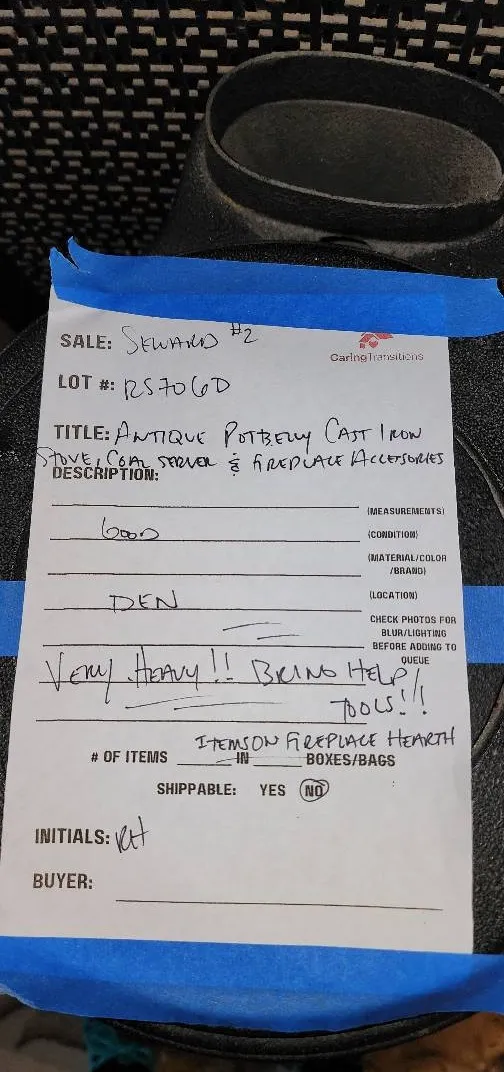 SALE: SEWARD #2
CaringTransitions
LOT #: RS706D
TITLE: ANTIQUE POTBELLY CAST IRON
STOVE, COAL SERVER & FIREPLACE ACCESSORIES
DESCRIPTION:
(MEASUREMENTS)
GOOD (CONDITION)
(MATERIAL/COLOR
/BRAND)
DEN (LOCATION)
CHECK PHOTOS FOR
BLUR/LIGHTING
BEFORE ADDING TO
QUEUE
VERY HEAVY!! BRING HELP/
TOOLS!!
ITEMS ON FIREPLACE HEARTH
# OF ITEMS IN BOXES/BAGS
SHIPPABLE: YES NO
INITIALS: RH
BUYER: